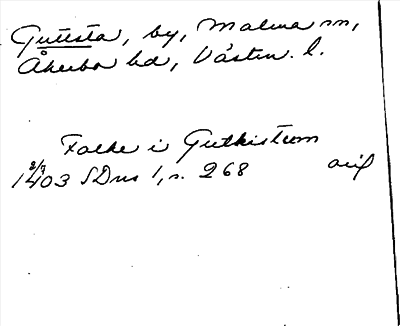 Guttsta, by, Malma sn,
Åkerbo hd, Västm. l.
Folke i Guthistum
2/7
1403 SDns 1, s. 268 avif